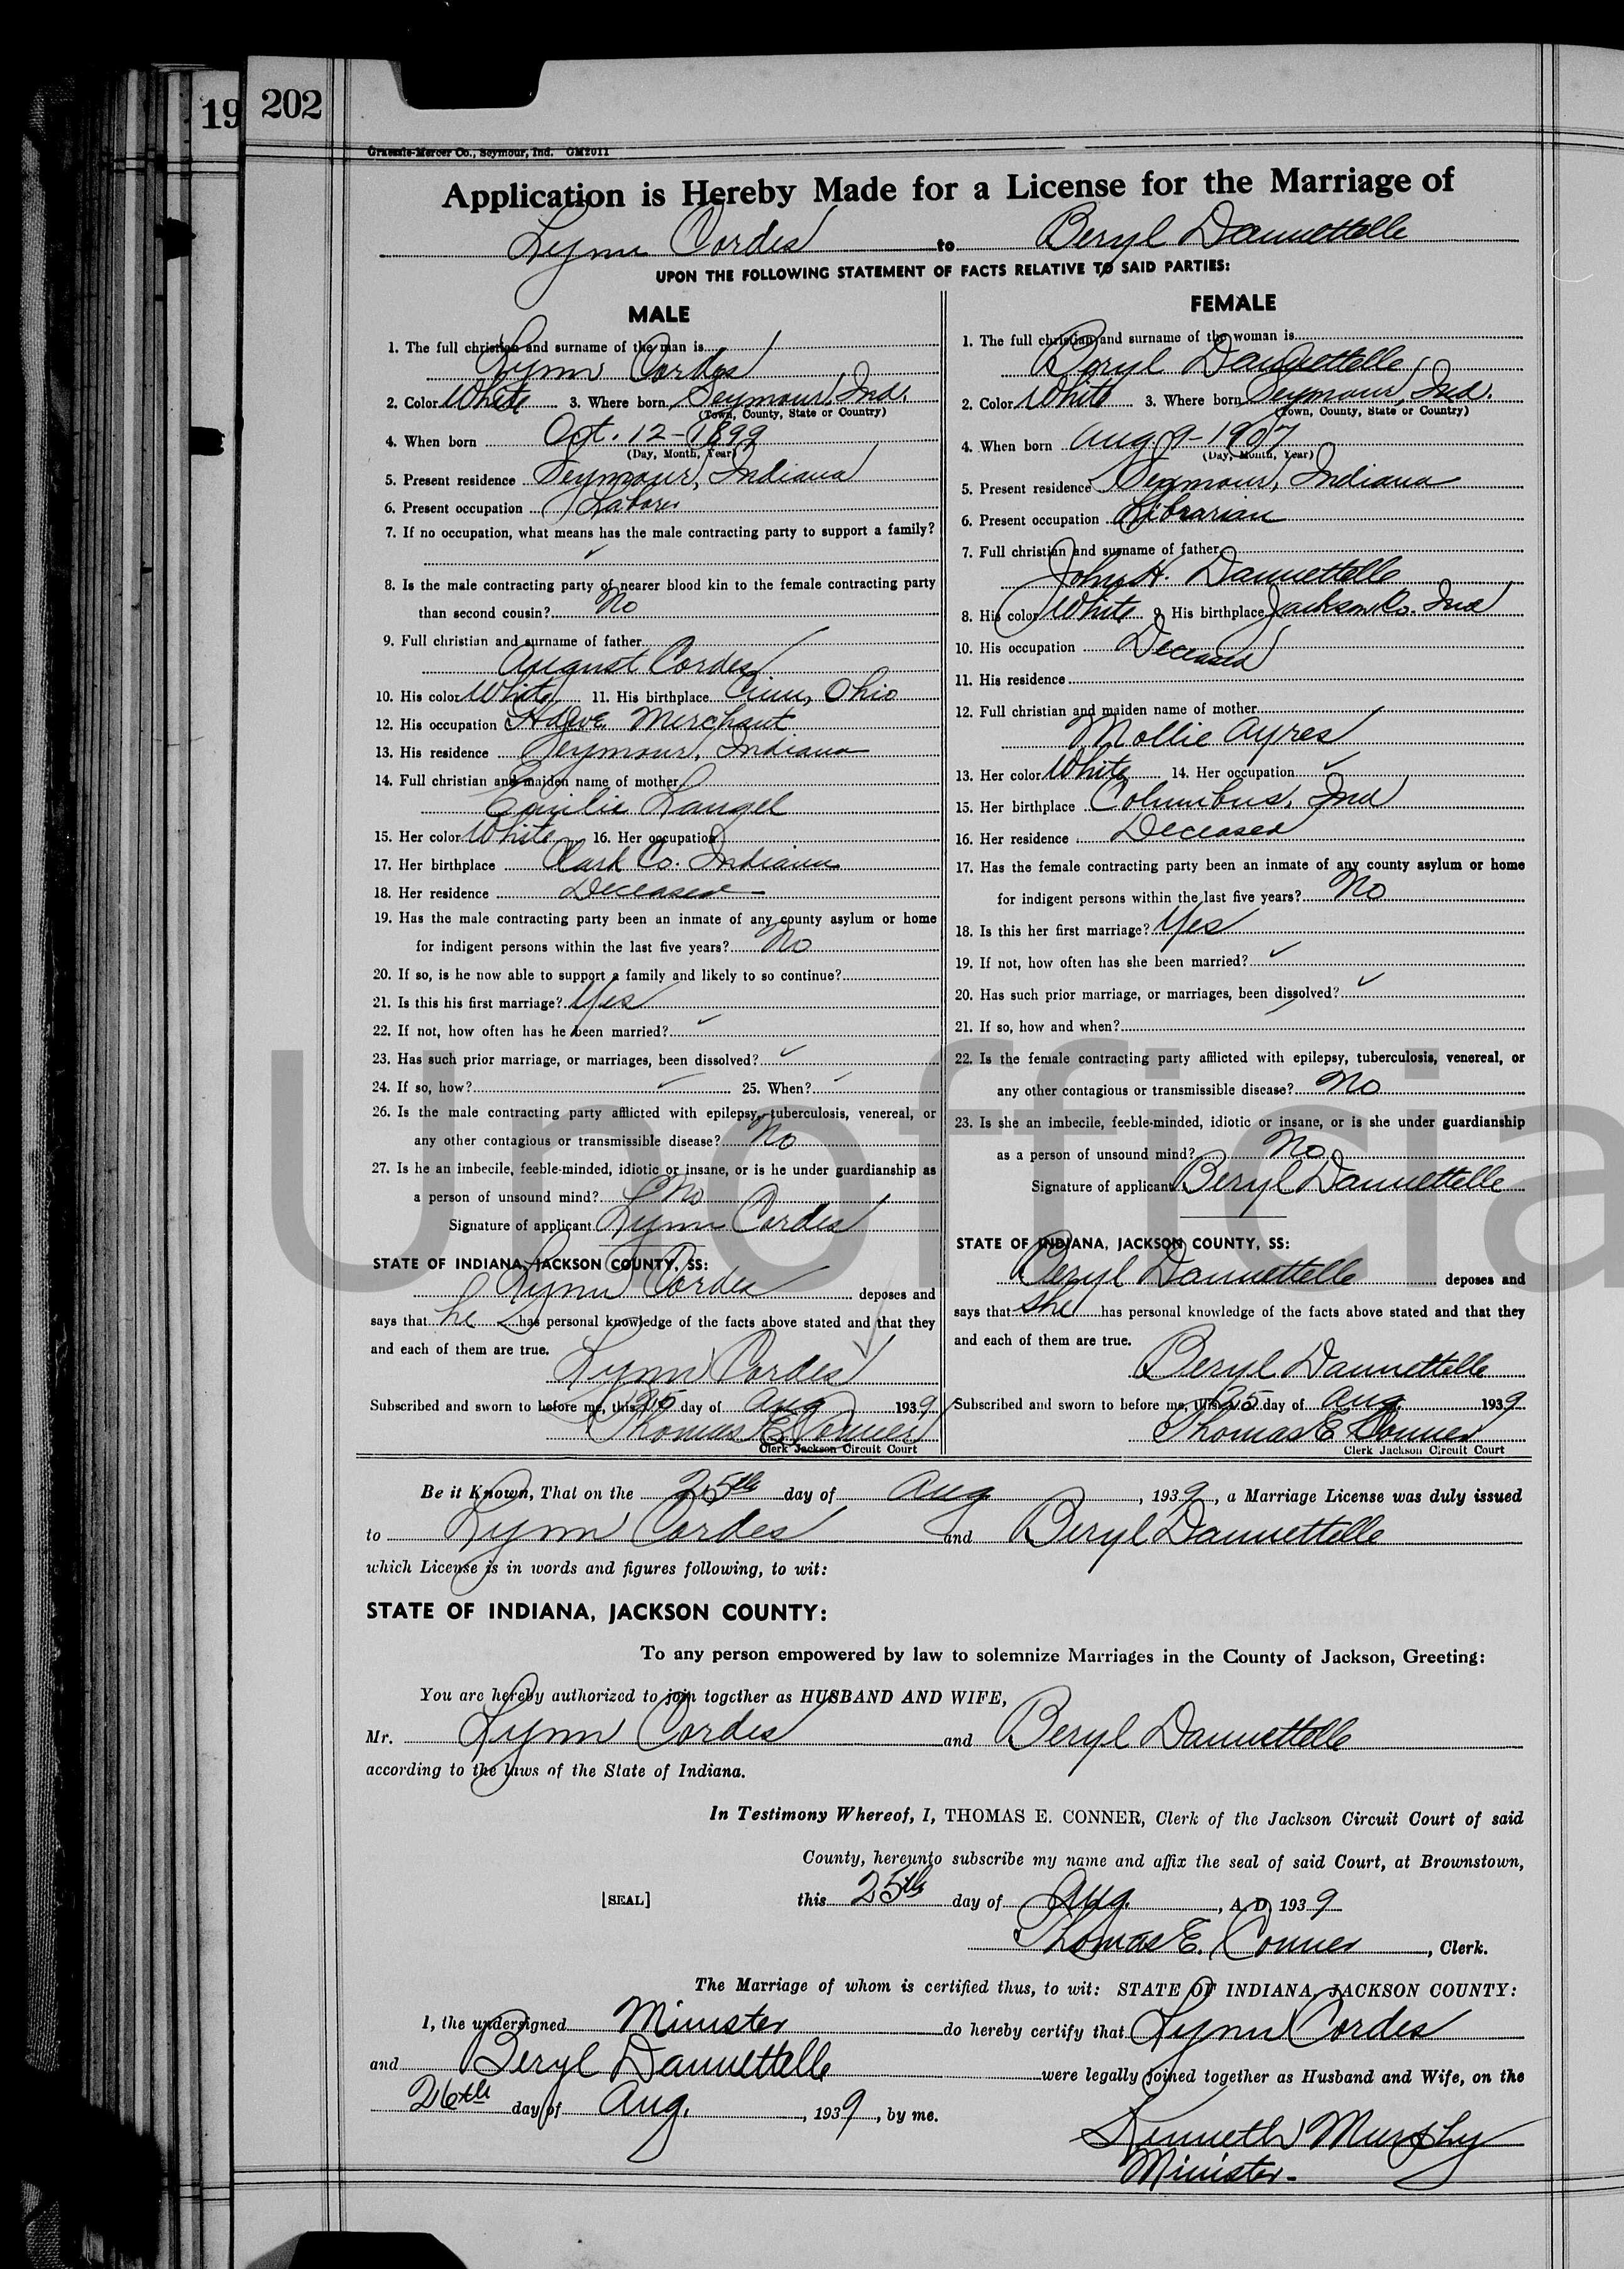 19 202
Graessle-Mercer Co., Seymour, Ind. GM2011
Application is Hereby Made for a License for the Marriage of
Lynn Cordes to Beryl Dannettelle
UPON THE FOLLOWING STATEMENT OF FACTS RELATIVE TO SAID PARTIES:
MALE
1. The full christian and surname of the man is
Lynn Cordes
2. Color White 3. Where born Seymour, Ind.
(Town, County, State or Country)
4. When born Oct. 12-1899
(Day, Month, Year)
5. Present residence Seymour, Indiana
6. Present occupation Laborer
7. If no occupation, what means has the male contracting party to support a family?
8. Is the male contracting party of nearer blood kin to the female contracting party
than second cousin? No
9. Full christian and surname of father
August Cordes
10. His color White 11. His birthplace Cinn, Ohio
12. His occupation Hdwe. Merchant
13. His residence Seymour, Indiana
14. Full christian and maiden name of mother
Emilie Langel
15. Her color White 16. Her occupation
17. Her birthplace Clark Co. Indiana
18. Her residence Deceased
19. Has the male contracting party been an inmate of any county asylum or home
for indigent persons within the last five years? No
20. If so, is he now able to support a family and likely to so continue?
21. Is this his first marriage? Yes
22. If not, how often has he been married?
23. Has such prior marriage, or marriages, been dissolved?
24. If so, how? 25. When?
26. Is the male contracting party afflicted with epilepsy, tuberculosis, venereal, or
any other contagious or transmissible disease? No
27. Is he an imbecile, feeble-minded, idiotic or insane, or is he under guardianship as
a person of unsound mind? No
Signature of applicant Lynn Cordes
STATE OF INDIANA, JACKSON COUNTY, SS:
Lynn Cordes deposes and
says that he has personal knowledge of the facts above stated and that they
and each of them are true.
Lynn Cordes
Subscribed and sworn to before me, this 25 day of Aug 1939
Thomas E Conner
Clerk Jackson Circuit Court
FEMALE
1. The full christian and surname of the woman is
Beryl Dannettelle
2. Color White 3. Where born Seymour, Ind.
(Town, County, State or Country)
4. When born Aug. 9-1907
(Day, Month, Year)
5. Present residence Seymour, Indiana
6. Present occupation Librarian
7. Full christian and surname of father
John H. Dannettelle
8. His color White 9 His birthplace Jackson Co. Ind
10. His occupation Deceased
11. His residence
12. Full christian and maiden name of mother
Mollie Ayres
13. Her color White 14. Her occupation
15. Her birthplace Columbus, Ind
16. Her residence Deceased
17. Has the female contracting party been an inmate of any county asylum or home
for indigent persons within the last five years? No
18. Is this her first marriage? Yes
19. If not, how often has she been married?
20. Has such prior marriage, or marriages, been dissolved?
21. If so, how and when?
22. Is the female contracting party afflicted with epilepsy, tuberculosis, venereal, or
any other contagious or transmissible disease? No
23. Is she an imbecile, feeble-minded, idiotic or insane, or is she under guardianship
as a person of unsound mind? No
Signature of applicant Beryl Dannettelle
STATE OF INDIANA, JACKSON COUNTY, SS:
Beryl Dannettelle deposes and
says that she has personal knowledge of the facts above stated and that they
and each of them are true.
Beryl Dannettelle
Subscribed and sworn to before me, this 25 day of Aug. 1939
Thomas E Conner
Clerk Jackson Circuit Court
Unofficia
Be it Known, That on the 25th day of Aug, 1939, a Marriage License was duly issued
to Lynn Cordes and Beryl Dannettelle
which License is in words and figures following, to wit:
STATE OF INDIANA, JACKSON COUNTY:
To any person empowered by law to solemnize Marriages in the County of Jackson, Greeting:
You are hereby authorized to join together as HUSBAND AND WIFE,
Mr. Lynn Cordes and Beryl Dannettelle
according to the laws of the State of Indiana.
In Testimony Whereof, I, THOMAS E. CONNER, Clerk of the Jackson Circuit Court of said
County, hereunto subscribe my name and affix the seal of said Court, at Brownstown,
[SEAL] this 25th day of Aug., A. D. 1939
Thomas E. Conner, Clerk.
The Marriage of whom is certified thus, to wit: STATE OF INDIANA, JACKSON COUNTY:
I, the undersigned Minister do hereby certify that Lynn Cordes
and Beryl Dannettelle were legally joined together as Husband and Wife, on the
26th day of Aug., 1939, by me.
Kenneth Murphy
Minister-